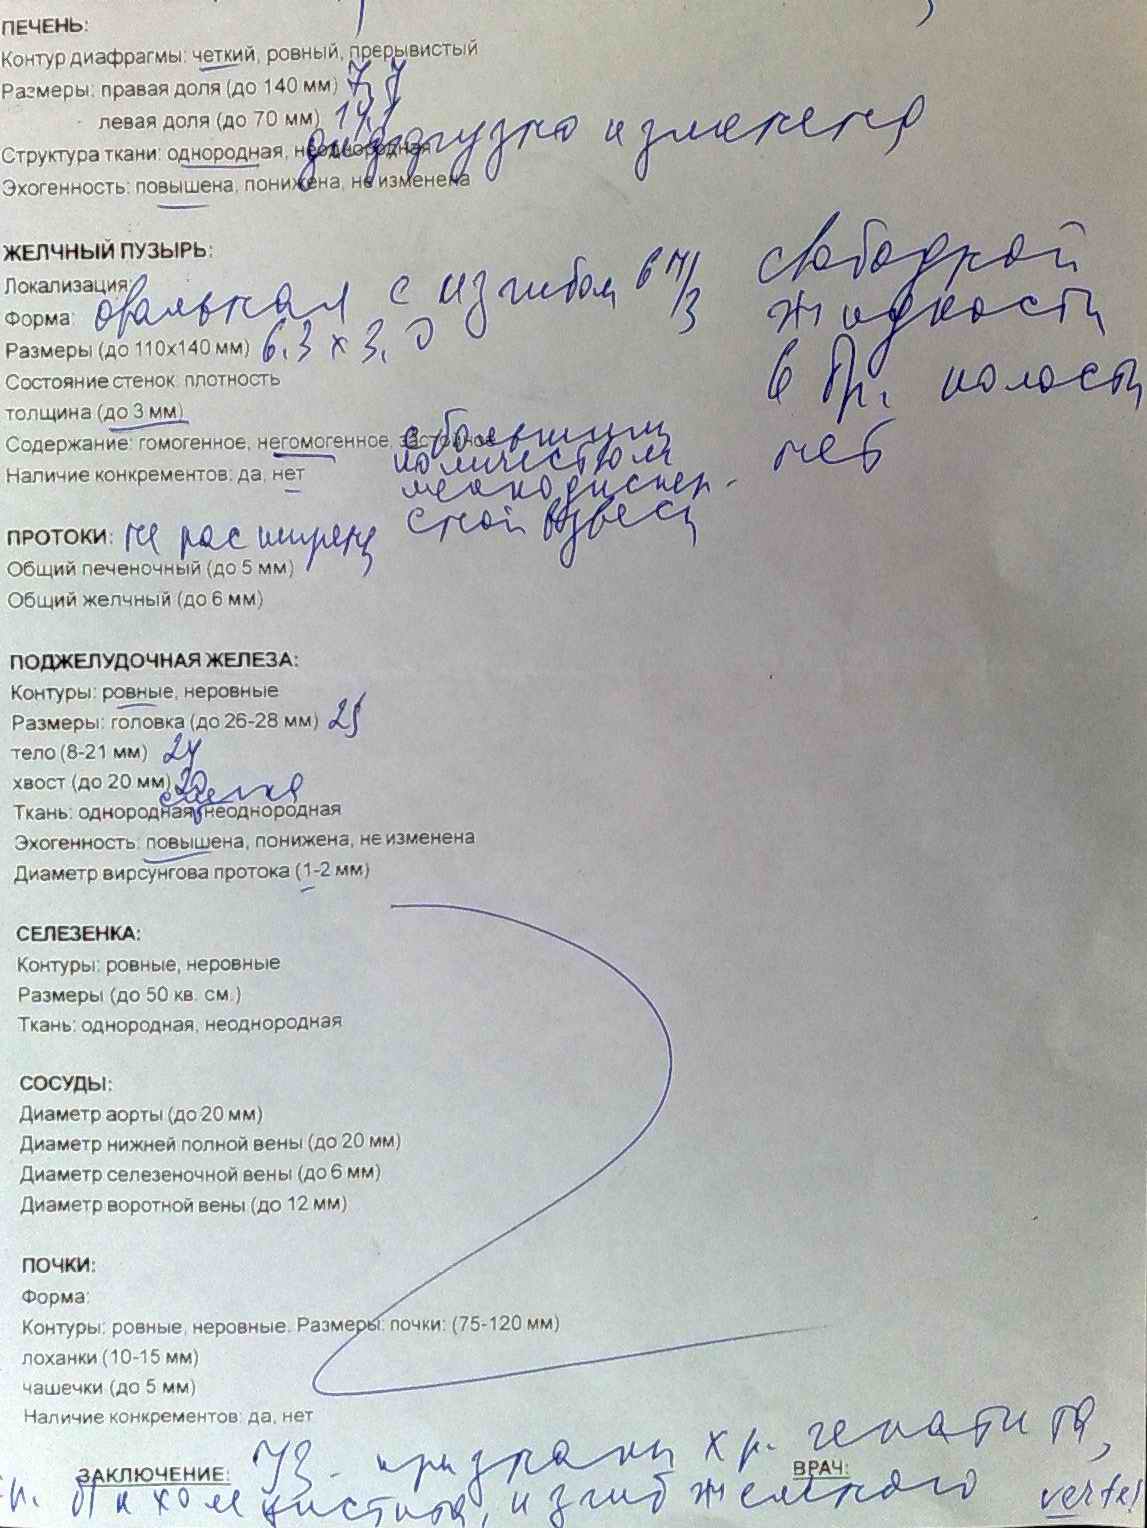 ПЕЧЕНЬ:
Контур диафрагмы: четкий, ровный, прерывистый
Размеры: правая доля (до 140 мм) 7,7
левая доля (до 70 мм) 14,1
диффузно изменена
Структура ткани: однородная, неоднородная
Эхогенность: повышена, понижена, не изменена
ЖЕЛЧНЫЙ ПУЗЫРЬ:
Локализация:
Форма: овальная с изгибом в н/3
Размеры (до 110х140 мм) 6.3 х 3.0
Состояние стенок: плотность
толщина (до 3 мм)
Содержание: гомогенное, негомогенное, застойное
с большим
количеством
мелкодиспер-
сной взвеси
Наличие конкрементов: да, нет
свободной
жидкости
в бр. полости
нет
ПРОТОКИ: не расширены
Общий печеночный (до 5 мм)
Общий желчный (до 6 мм)
ПОДЖЕЛУДОЧНАЯ ЖЕЛЕЗА:
Контуры: ровные, неровные
Размеры: головка (до 26-28 мм) 25
тело (8-21 мм) 24
хвост (до 20 мм)
Ткань: однородная, неоднородная
Эхогенность: повышена, понижена, не изменена
Диаметр вирсунгова протока (1-2 мм)
СЕЛЕЗЕНКА:
Контуры: ровные, неровные
Размеры (до 50 кв. см.)
Ткань: однородная, неоднородная
СОСУДЫ:
Диаметр аорты (до 20 мм)
Диаметр нижней полной вены (до 20 мм)
Диаметр селезеночной вены (до 6 мм)
Диаметр воротной вены (до 12 мм)
ПОЧКИ:
Форма:
Контуры: ровные, неровные. Размеры: почки: (75-120 мм)
лоханки (10-15 мм)
чашечки (до 5 мм)
Наличие конкрементов: да, нет
ЗАКЛЮЧЕНИЕ: УЗ-признаки хр. гепатита,
ВРАЧ:
изгиб желчного